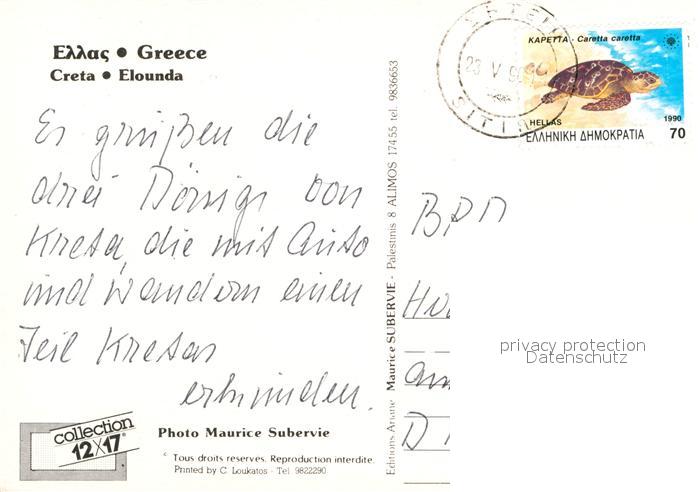 Ελλας • Greece
Creta • Elounda
Es grüßen die
drei Könige von
Kreta, die mit Auto
und Wandern einen
Teil Kretas
erkunden.
collection
12X17
Photo Maurice Subervie
© Tous droits reserves. Reproduction interdite.
Printed by C. Loukatos - Tel. 9822290
Editions Ariane - Maurice SUBERVIE - Palestinis 8 ALIMOS 17455 tel. 9836653
23 V
ΚΑΡΕΤΤΑ - Caretta caretta
HELLAS
1990
ΕΛΛΗΝΙΚΗ ΔΗΜΟΚΡΑΤΙΑ
70
privacy protection
Datenschutz